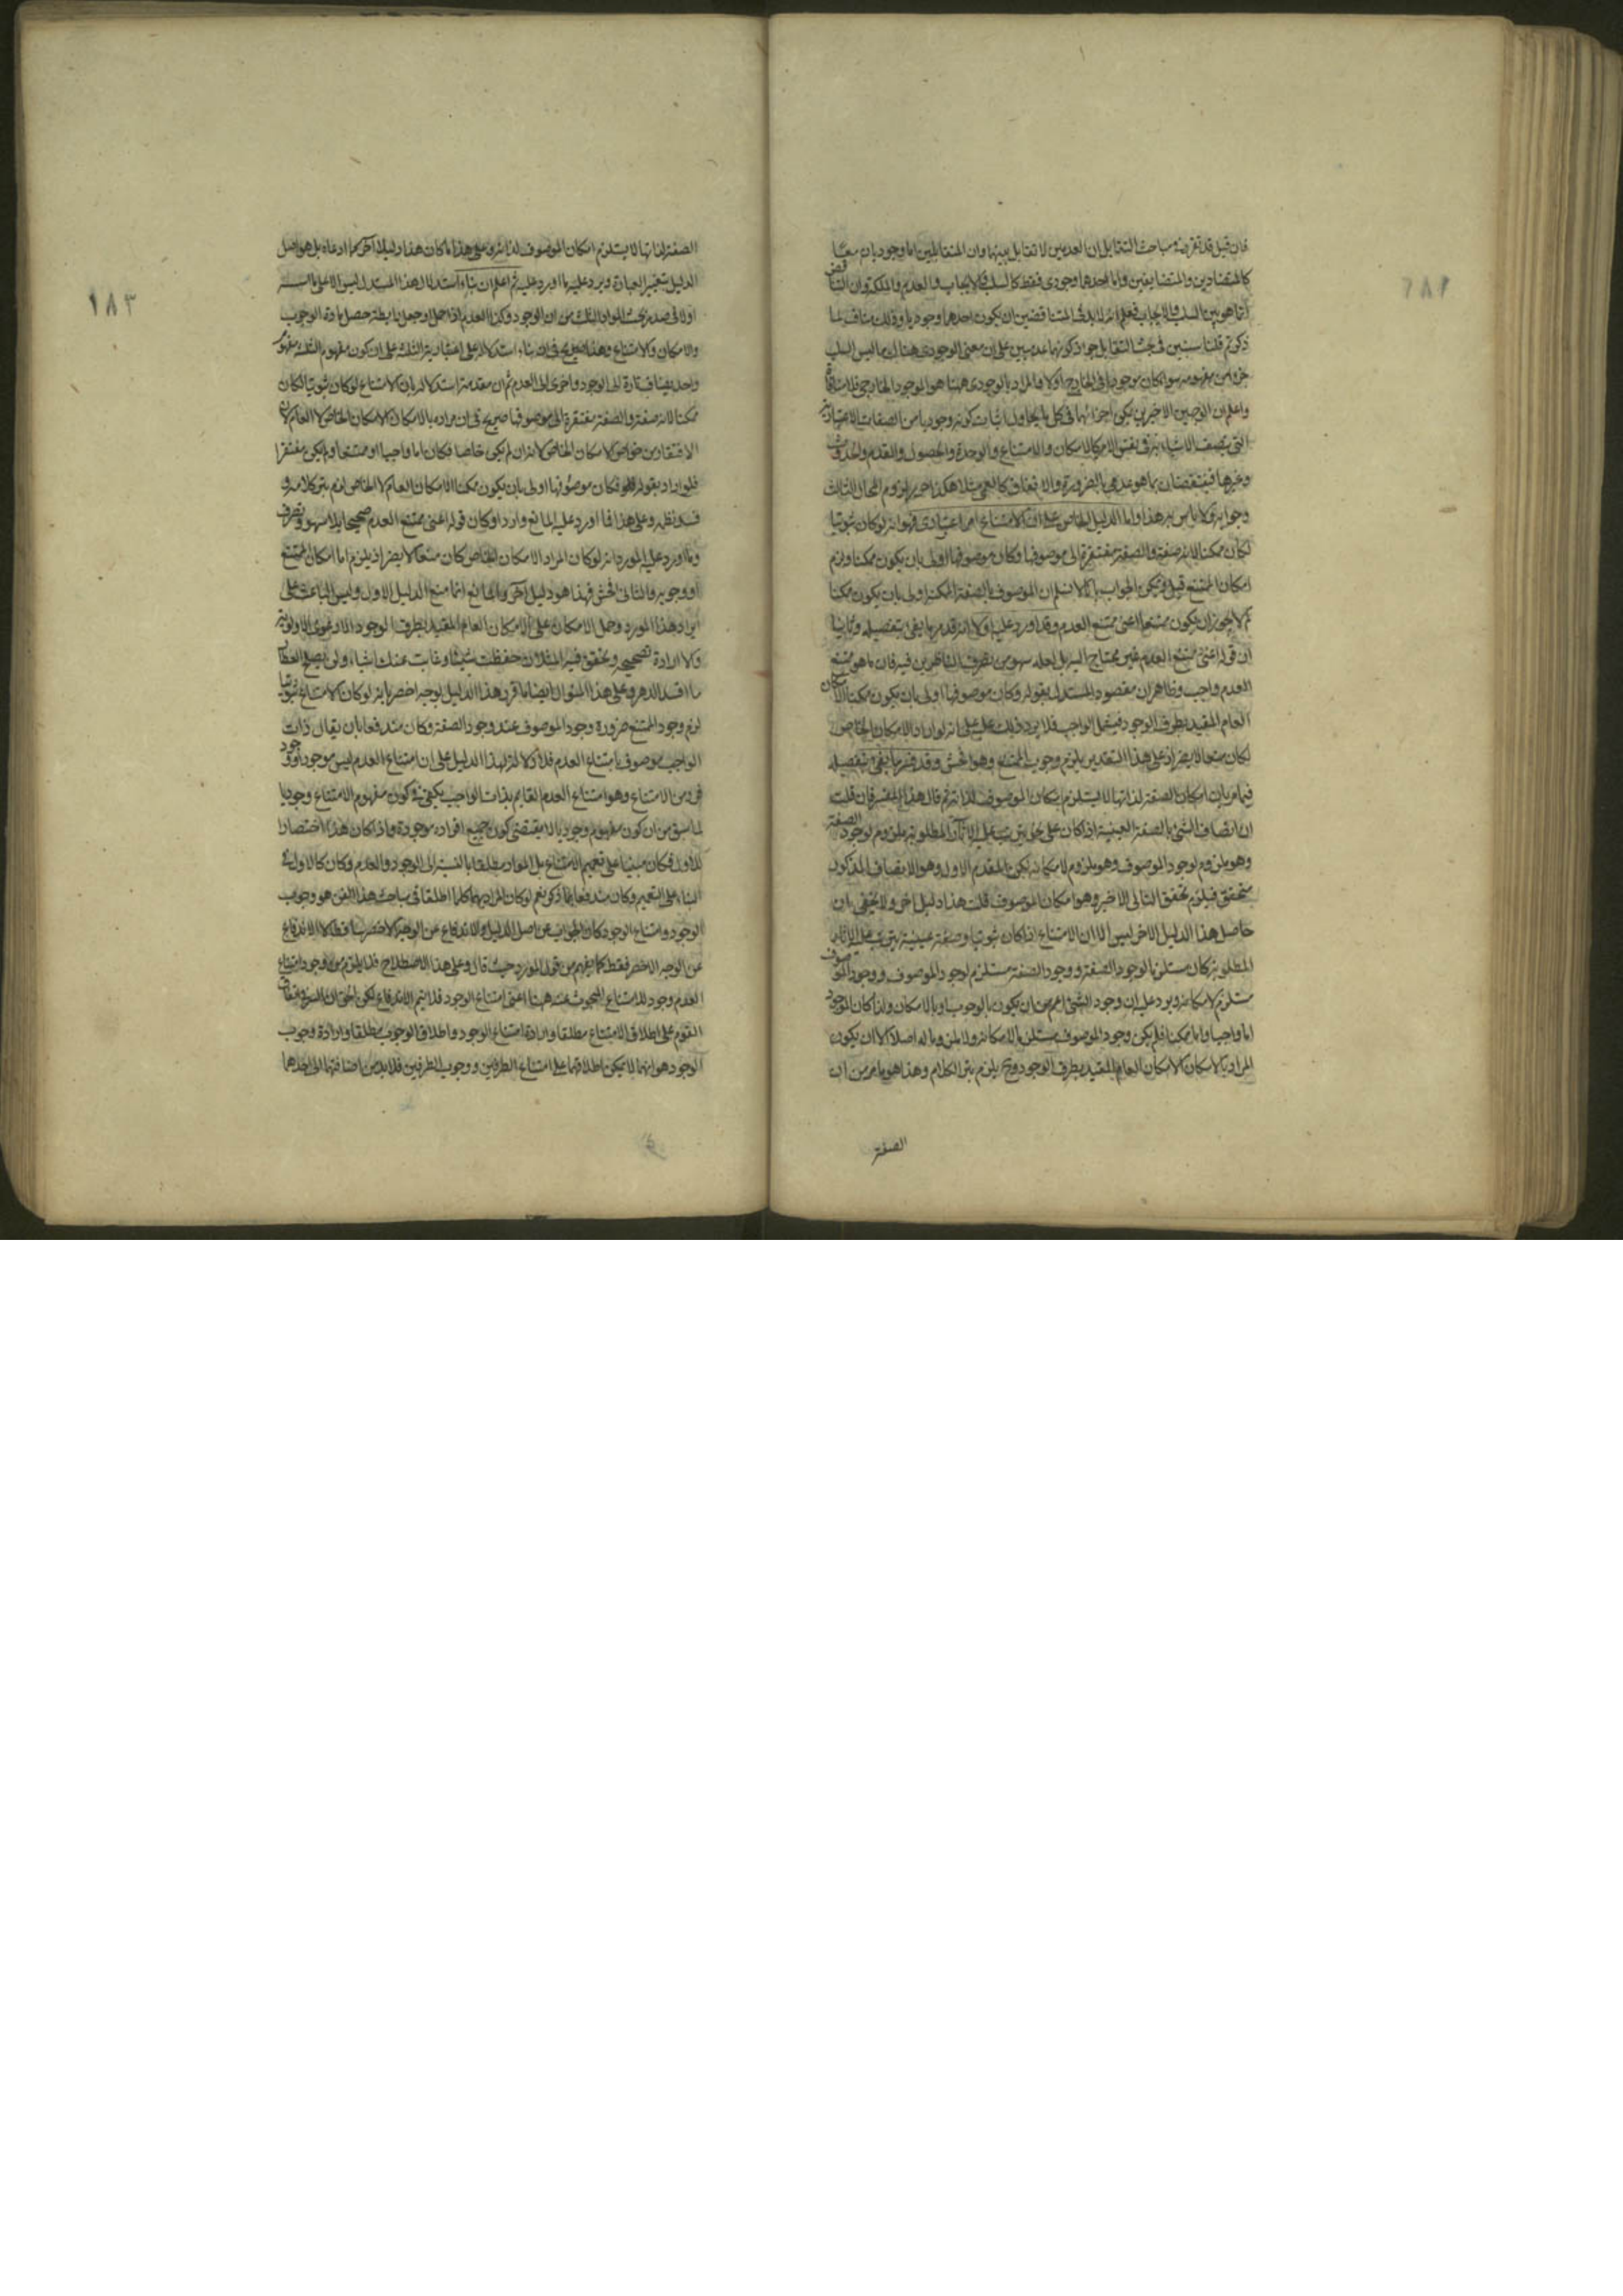 فان قيل قد تقرر في مباحث التقابل ان العدميين لا تقابل بينهما وان المتقابلين اما وجوديان معا
كالمتضادين والمتضايفين واما احدهما وجودي فقط كالسلب والايجاب والعدم والملكة وان التناقض
انما هو بين السلب والايجاب فعلم انه لابد في المتناقضين ان يكون احدهما وجوديا وذلك مناف لما
ذكرتم قلنا سنبين في بحث التقابل جواز كونهما عدميين على ان معنى الوجودي هناك ما ليس السلب
جزءا من مفهومه سواء كان موجودا في الخارج اولا والمراد بالوجودي ههنا هو الموجود الخارجي فلا منافاة
واعلم ان الوجهين الاخيرين يمكن اجراؤهما في كل ما يحاول اثبات كونه وجوديا من الصفات الاعتبارية
التي يتصف الاشياء بها في نفس الامر كالامكان والامتناع والوحدة والحصول والقدم والحدوث
وغيرها فينتقضان بما هو عدمي بالضرورة والاتفاق كالعمى مثلا هكذا لزوم المحال الثالث
وجوابه لا باس به هذا واما الدليل الخاص على ان الامتناع امر اعتباري فهو انه لو كان ثبوتيا
لكان ممكنا لانه صفة والصفة مفتقرة الى موصوفها وكان موصوفها اولى بان يكون ممكنا ويلزم
امكان الممتنع قيل ويمكن الجواب بانا لا نسلم ان الموصوف بالصفة الممكنة اولى بان يكون ممكنا
لم لا يجوز ان يكون ممتنعا اعني ممتنع العدم وقد اورد عليه اولا انه قد مر ما يفي بتفصيله وثانيا
ان قوله اعني ممتنع العدم غير محتاج اليه بل لعله سهو من تصرف الناظرين فيه فان ما هو ممتنع
العدم واجب وظاهر ان مقصود المستدل بقوله وكان موصوفها اولى بان يكون ممكنا الامكان
العام المقيد بطرف الوجود فيشمل الواجب فلا يرد ذلك عليه على انه لو اراد الامكان الخاص
لكان منعا لا يضر اذ على هذا التقدير يلزم وجوب الممتنع وهو افحش وقد مر ما يفي بتفصيله
فيما مر بان امكان الصفة لذاتها لا يستلزم امكان الموصوف لذاته ثم قال هذا المفسر فان قلت
ان اتصاف الشيء بالصفة العينية اذا كان على نحو يترتب عليه الاثار المطلوبة ملزوم لوجود الصفة
وهو ملزوم لوجود الموصوف وهو ملزوم لامكانه لكن المقدم الاول وهو الاتصاف المذكور
متحقق فيلزم تحقق التالي الاخير وهو امكان الموصوف قلت هذا دليل اخر ولا يخفى ان
حاصل هذا الدليل الاخر ليس الا ان الامتناع اذا كان ثبوتيا وصفة عينية يترتب عليه الاثار
المطلوبة كان مستلزما لوجود الصفة ووجود الصفة مستلزم لوجود الموصوف ووجود الموصوف
مستلزم لامكانه ويرد عليه ان وجود الشيء اعم من ان يكون بالوجوب او بالامكان واذا كان الموجود
اما واجبا واما ممكنا فلم يكن وجود الموصوف مستلزما لامكانه ولا ملزوما له اصلا الا ان يكون
المراد بالامكان الامكان العام المقيد بطرف الوجود وح يلزم بتر الكلام وهذا هو ما مر من ان
الصفة
الصفة لذاتها لا يستلزم امكان الموصوف لذاته وعلى هذا ما كان هذا دليلا اخر كما ادعاه بل هو اصل
الدليل بتغيير العبارة ويرد عليه ما اورد عليه ثم اعلم ان بناء استدلال هذا المستدل ليس الا على ما اسسه
اولا في صدر بحث المواد الثلث من ان الوجود وكذا العدم اذا حمل او جعل رابطة حصل مادة الوجوب
والامكان والامتناع وهذا صريح في ان بناء استدلاله على اعتبار الثلثة على ان يكون مفهوم الثلثة مفهوما
واحدا يضاف تارة الى الوجود واخرى الى العدم ثم ان مقدمة استدلاله بان الامتناع لو كان ثبوتيا لكان
ممكنا لانه صفة والصفة مفتقرة الى موصوفها صريح في ان مراده بالامكان الامكان الخاص لا العام لان
الافتقار من خواص الامكان الخاص لانه ان لم يكن خاصا فكان اما واجبا او ممتنعا ولم يكن مفتقرا
فلو اراد بقوله فكان موصوفها اولى بان يكون ممكنا الامكان العام لا الخاص لزم بتر كلامه و
فسد نظمه وعلى هذا فما اورد عليه المانع وارد او كان قوله اعني ممتنع العدم صحيحا بلا سهو وتصرف
وما اورد عليه المورد انه لو كان المراد الامكان الخاص كان منعا لا يضر اذ يلزم اما امكان الممتنع
او وجوبه والثاني افحش فهذا هو دليل اخر والمانع انما منع الدليل الاول وليس الباعث على
ايراد هذا المورد وحمل الامكان على الامكان العام المقيد بطرف الوجود الا دعوى الاولوية
والارادة تصحيحه وتحقق فيه المثلان حفظت شيئا وغابت عنك اشياء ولن يصلح العطار
ما افسد الدهر وعلى هذا المنوال ايضا ما قرر هذا الدليل بوجه اخصر بانه لو كان الامتناع ثبوتيا
لزم وجود الممتنع ضرورة وجود الموصوف عند وجود الصفة وكان مندفعا بان يقال ذات
الواجب موصوف بامتناع العدم فلا اولا لهذا الدليل على ان امتناع العدم ليس موجودا ووجود
فرد من الامتناع وهو امتناع العدم القايم بذات الواجب يكفي في كون مفهوم الامتناع وجوديا
لما سبق من ان كون مفهوم وجوديا لا يقتضي كون جميع افراده موجودة واذا كان هذا اختصارا
للاول فكان مبنيا على تعميم الامتناع بل المواد مطلقا بالنسبة الى الوجود والعدم وكان كالاول في
البناء على التعميم وكان مندفعا بما ذكر نعم لو كان المراد بهما كلما اطلقا في مباحث هذا الفن هو وجوب
الوجود وامتناع الوجود كان الجواب عن اصل الدليل والاندفاع عن الوجه الاخصر ساقطا لا الاندفاع
عن الوجه الاخصر فقط كما يفهم من قول المورد حيث قال وعلى هذا الاصطلاح فلا يلزم من وجود امتناع
العدم وجود الامتناع المبحوث عنه ههنا اعني امتناع الوجود فلا يتم الاندفاع لكن الحق ان السر في اتفاق
القوم على اطلاق الامتناع مطلقا وارادة امتناع الوجود واطلاق الوجوب مطلقا وارادة وجوب
الوجود هو انهما لا يمكن اطلاقهما على امتناع الطرفين ووجوب الطرفين فلابد من اضافتهما الى احدهما
١٨٣